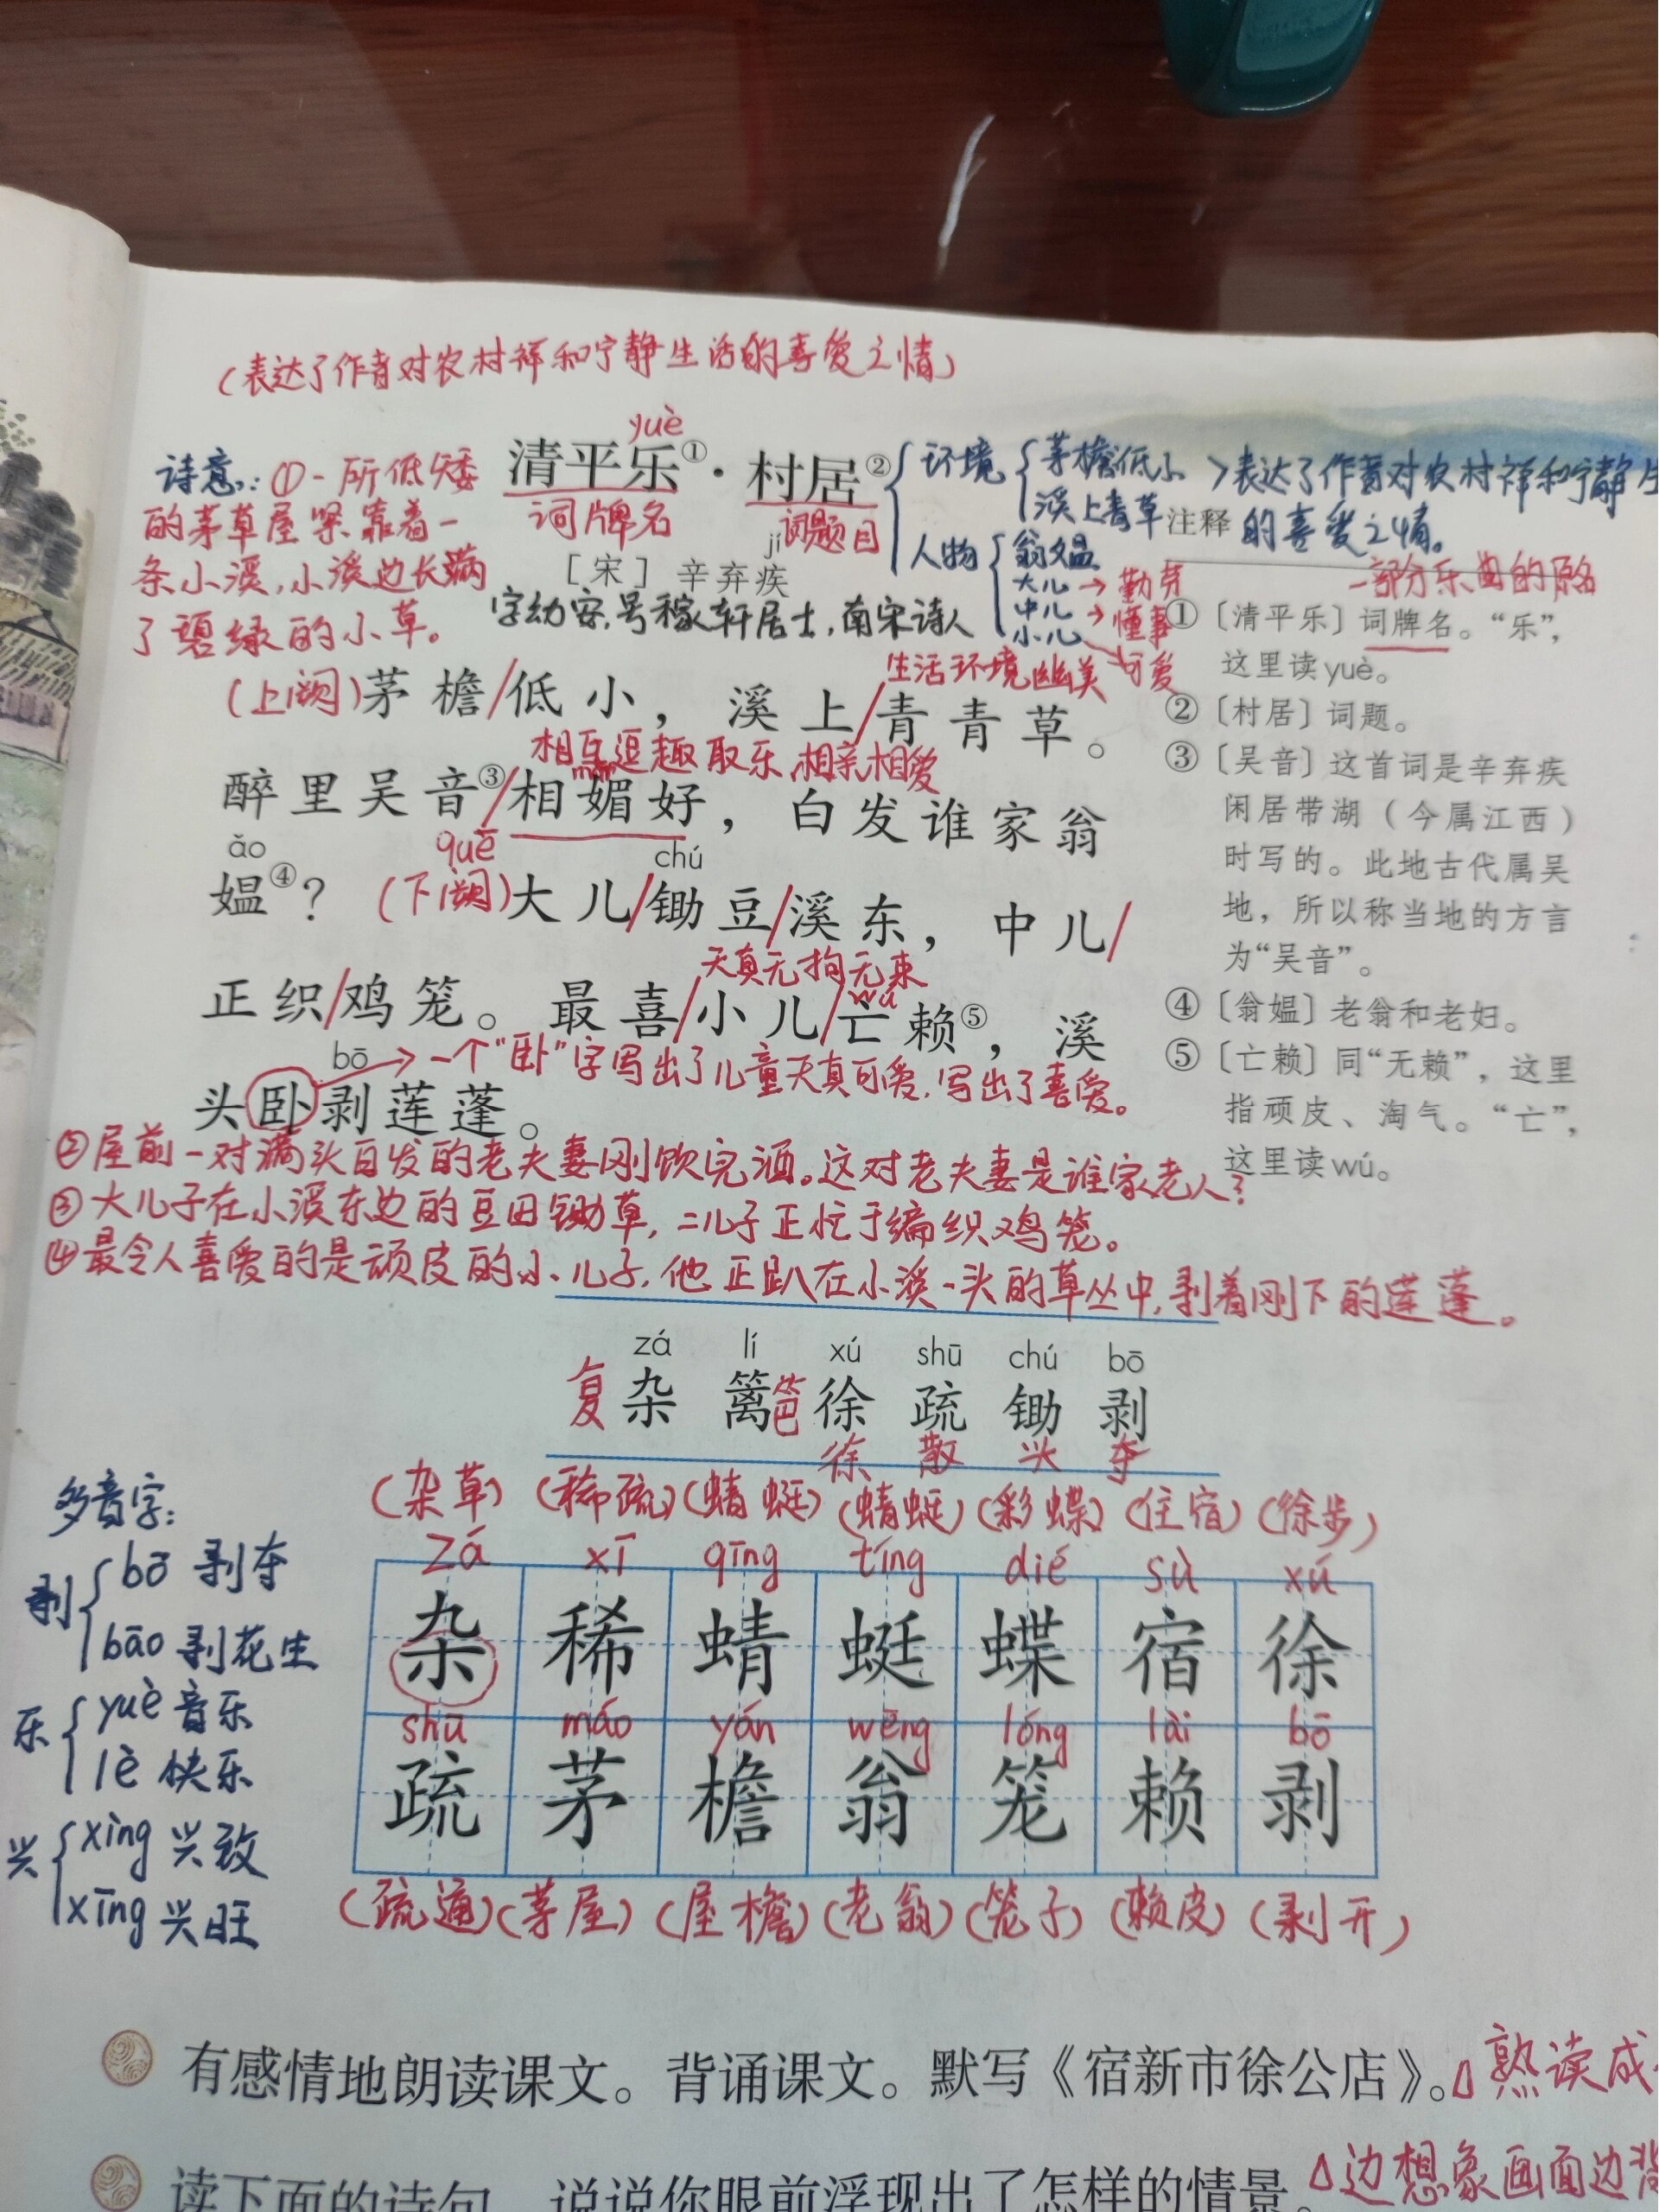 (表达了作者对农村祥和宁静生活的喜爱之情)
yuè
清平乐①·村居②
词牌名 词题目
jí
[宋] 辛弃疾
字幼安,号稼轩居士,南宋诗人
环境 茅檐低小
溪上青草
>表达了作者对农村祥和宁静生
的喜爱之情。
人物 翁媪
大儿→勤劳
中儿→懂事
小儿→可爱
诗意:①一所低矮
的茅草屋紧靠着一
条小溪,小溪边长满
了碧绿的小草。
生活环境幽美
(上阕)茅檐/低小,溪上/青青草。
相互逗趣取乐,相亲相爱
醉里吴音③/相媚好,白发谁家翁
ǎo quē chú
媪④?(下阕)大儿/锄豆/溪东,中儿/
天真无拘无束
wú
正织/鸡笼。最喜/小儿/亡赖⑤,溪
bō →一个“卧”字写出了儿童天真可爱,写出了喜爱。
头卧剥莲蓬。
②屋前一对满头白发的老夫妻刚饮完酒。这对老夫妻是谁家老人?
③大儿子在小溪东边的豆田锄草,二儿子正忙于编织鸡笼。
④最令人喜爱的是顽皮的小儿子,他正趴在小溪一头的草丛中,剥着刚下的莲蓬。
注释
一部分乐曲的原名
①〔清平乐〕词牌名。“乐”,
这里读yuè。
②〔村居〕词题。
③〔吴音〕这首词是辛弃疾
闲居带湖(今属江西)
时写的。此地古代属吴
地,所以称当地的方言
为“吴音”。
④〔翁媪〕老翁和老妇。
⑤〔亡赖〕同“无赖”,这里
指顽皮、淘气。“亡”,
这里读wú。
zá lí xú shū chú bō
复杂 篱笆 徐 疏 锄 剥
徐 散 头 夺
(杂草)(稀疏)(蜻蜓)(蜻蜓)(彩蝶)(住宿)(徐步)
zá xī qīng tíng dié sù xú
杂 稀 蜻 蜓 蝶 宿 徐
shū máo yán wēng lóng lài bō
疏 茅 檐 翁 笼 赖 剥
(疏通)(茅屋)(屋檐)(老翁)(笼子)(赖皮)(剥开)
多音字:
剥 bō 剥夺
bāo 剥花生
乐 yuè 音乐
lè 快乐
兴 xìng 兴致
xīng 兴旺
有感情地朗读课文。背诵课文。默写《宿新市徐公店》。△熟读成
读下面的诗句,说说你眼前浮现出了怎样的情景。△边想象画面边背